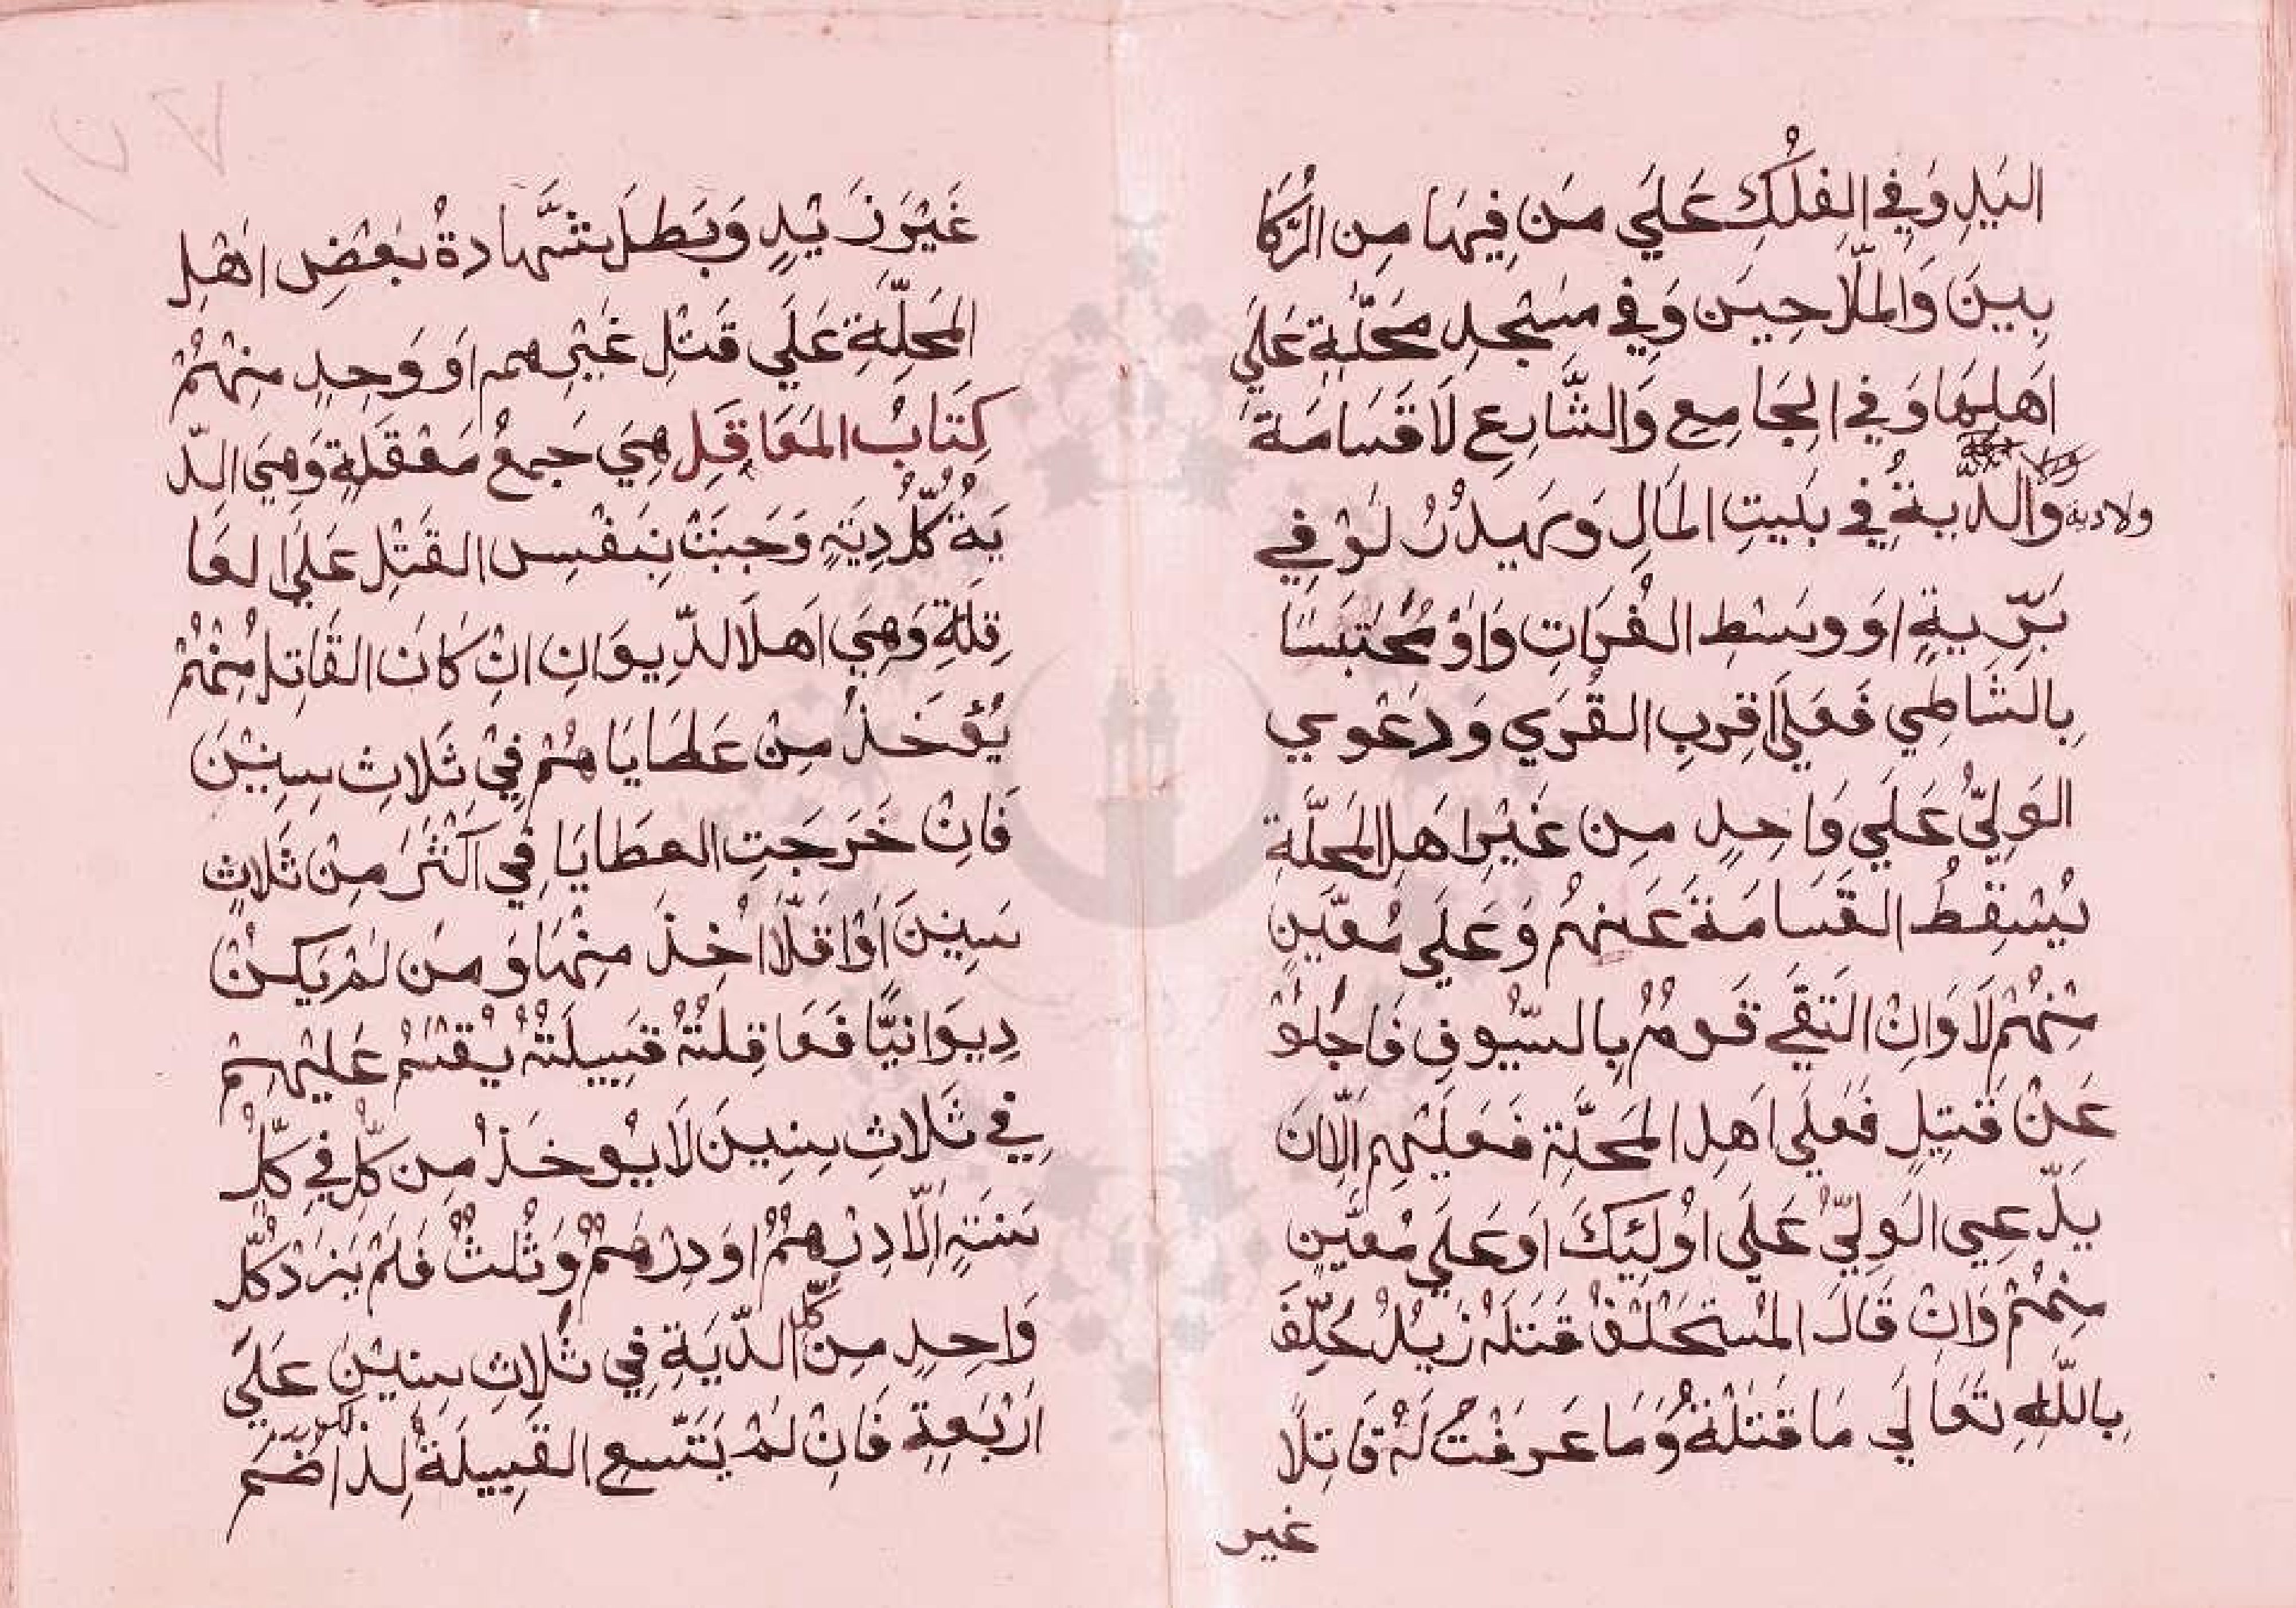 اليَدِ وَفِي الفِلُكِ عَلَي مَن فِيهَا مِن الرُّكَا
بِينَ وَالملَّاحِينَ وَفِي مَسْجِدِ مَحَلَّةٍ عَلَي
اَهلِهَا وَفِي الجَامِعِ وَالشَّارِعِ لَا قَسَامَةَ
وَالدّيةُ فِي بَيتِ المَالِ وَيَهدُرُ لَوْ فِي
ولادية
بَرِّيةٍ اَو وَسْطِ الفُرَاتِ وَلَوْ مُحْتَبَسًا
بِالشَاطِي فَعَلَي اَقرِبِ القُرَي وَدَعْوي
الوَلِيُّ عَلَي وَاحِدٍ مِن غَيْرِ اَهلِ المَحَلَّةِ
يُسْقِطُ القَسَامَةَ عَنهُم وَعَلَي مُعَيَّنٍ
مِنْهُمْ لَا وَانِ التَقَي قَومٌ بِالسّيُوفِ فَاَجلَوْ
عَنْ قَتِيلٍ فَعَلَي اَهلِ المَحَلَّةِ فَعَلَيهِم اِلَّا اَن
يَدّعِي الوَلِيُّ عَلَي اوُلَئِكَ اَو عَلَي مُعَيَّنٍ
مِنهُمْ وَانِ قَالَ المُسْتَحْلَفُ قَتَلَهُ زَيدٌ حُلِّفَ
بِاللَّهِ تَعَالَي مَا قَتَلْتهُ وَمَا عَرَفْتُ لَهُ قَاتِلًا
غير
غَيْرَ زَيْدٍ وَبَطلَ شَهَادةُ بَعْضِ اهْلِ
المَحَلِّةِ عَلَي قَتْلِ غَيْرِهم اَو وَحِدٍ مِنْهُمْ
كِتَابُ المَعَاقِلِ هِيَ جَمعُ مَعْقَلةٍ وَهِيَ الدّ
يَةُ كُلُّ دِيَةٍ وَجَبَتْ بِنَفْسِ القَتْلِ عَلَي العَا
قِلَةِ وَهِيَ اَهلُ الدِّيوَانِ انِْ كَانَ القَاتِلُ مِنْهُمْ
يُؤخَذُ مِنْ عَطَايَا هُمْ فِيْ ثَلاثِ سِنِيْنَ
فَانِْ خَرَجَتِ العَطَايَا فِي اَكْثَرَ مِنْ ثَلاثِ
سِنِينَ اَوْ اقَلَّ اُخِذَ مِنْهَا وَ مَن لَمْ يَكُنْ
دِيوَانيًّا فَعَاقِلتُهُ قَبِيلَتُهُ يُقْسَمْ عَلَيْهِمْ
فِي ثَلاثِ سِنِينَ لَا يُوخَذُ مِن كُلٍّ فِي كُلِّ
سَنَةٍ اِلَّا دِرْهَمٌ اَو دِرْهَمٌ وَثُلثٌ فَلَمْ يَزِدْ كُلُّ
وَاحِدٍ مِنْ كُلِّ الدّيَةِ فِي ثَلاثِ سِنيْنَ عَلَي
اَرْبَعةٍ فَانِْ لَمْ يَتَّسعِ القَبِيلَةُ لِذَلكَ ضُمَّ
١٥٧